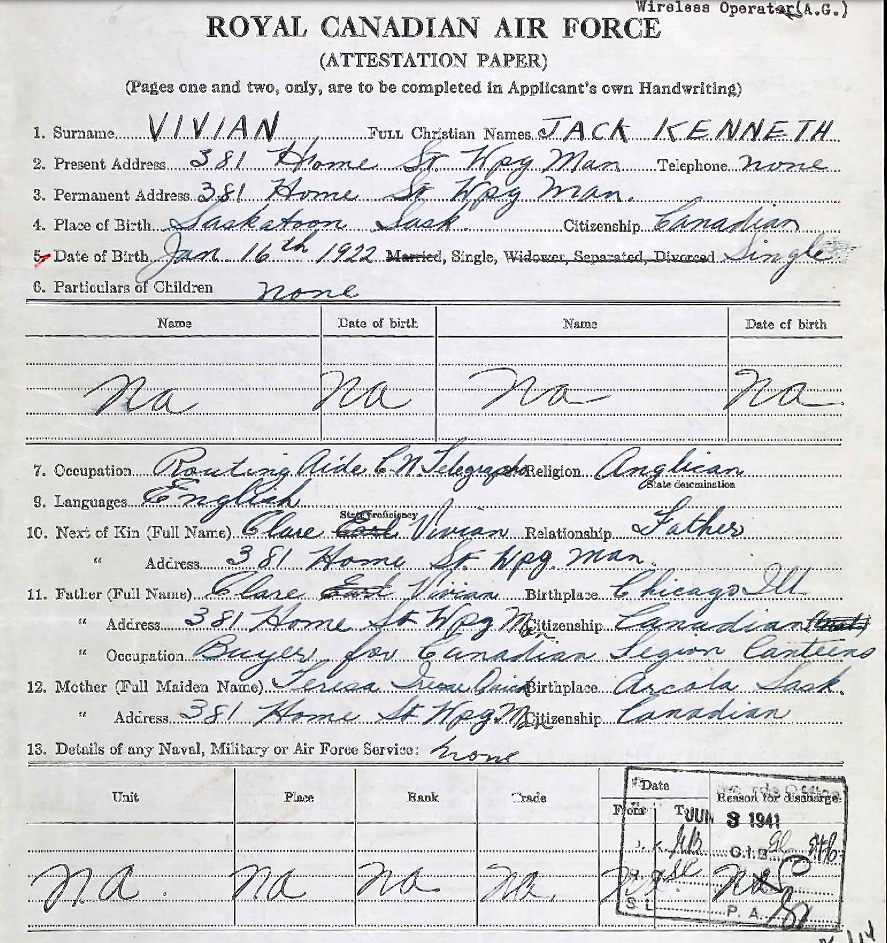 Wireless Operator (A.G.)
ROYAL CANADIAN AIR FORCE
(ATTESTATION PAPER)
(Pages one and two, only, are to be completed in Applicant's own Handwriting)
1. Surname VIVIAN FULL Christian Names JACK KENNETH
2. Present Address 381 Home St Wpg Man Telephone none
3. Permanent Address 381 Home St Wpg Man.
4. Place of Birth Saskatoon Sask. Citizenship Canadian
5. Date of Birth Jan 16th 1922 Married, Single, Widower, Separated, Divorced Single
6. Particulars of Children none
Name Date of birth Name Date of birth
Na Na Na Na
7. Occupation Routing Aide C N Telegraphs Religion Anglican
State denomination
9. Languages English
State proficiency
10. Next of Kin (Full Name) Clare Earl Vivian Relationship Father
" Address 381 Home St. Wpg. Man.
11. Father (Full Name) Clare Earl Vivian Birthplace Chicago Ill
" Address 381 Home St Wpg Man Citizenship Canadian
" Occupation Buyer for Canadian Legion Canteens
12. Mother (Full Maiden Name) Teresa Birthplace Arcola Sask.
" Address 381 Home St Wpg Man Citizenship Canadian
13. Details of any Naval, Military or Air Force Service: none
Unit Place Rank Trade Date Reason for discharge
From To
JUN 3 1941
C.I.B.
Na. Na Na Na. Na Na
S.L. P.A.